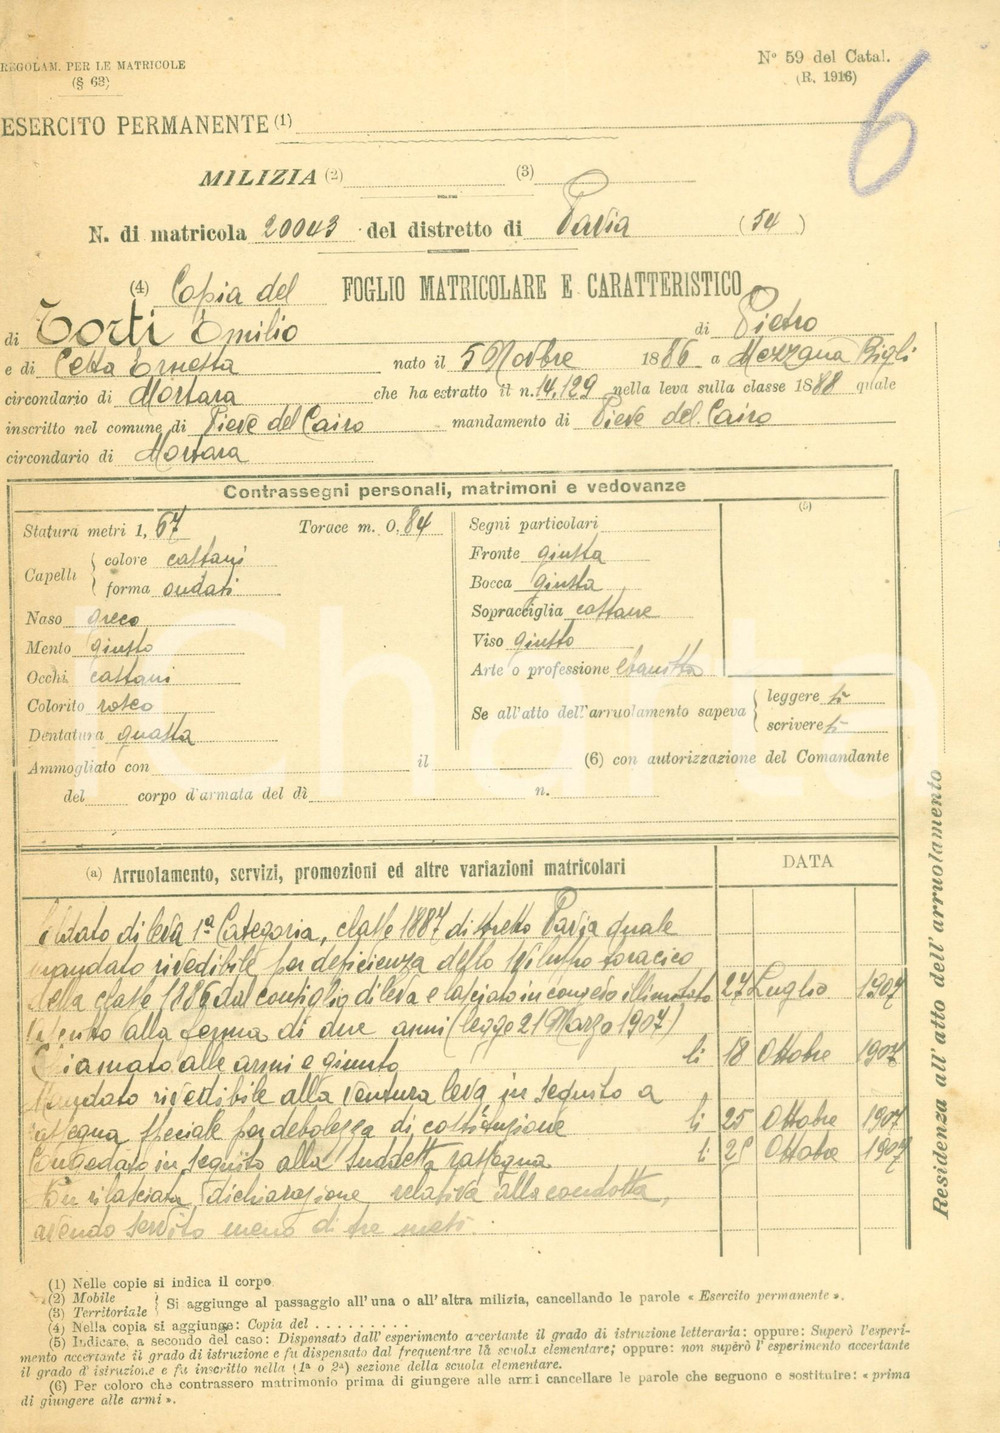 REGOLAM. PER LE MATRICOLE
(§ 63)
Nº 59 del Catal.
(R. 1916)
6
ESERCITO PERMANENTE (1)
MILIZIA (2) (3)
N. di matricola 20043 del distretto di Pavia (54)
(4) Copia del FOGLIO MATRICOLARE E CARATTERISTICO
di Torti Emilio di Pietro
e di Cetta Ernesta nato il 5 Novbre 1886 a Mezzana Bigli
circondario di Mortara che ha estratto il n. 14,129 nella leva sulla classe 1888 quale
inscritto nel comune di Pieve del Cairo mandamento di Pieve del Cairo
circondario di Mortara
Contrassegni personali, matrimoni e vedovanze
Statura metri 1,67 Torace m. 0,84
Capelli { colore castani
forma ondati
Naso greco
Mento giusto
Occhi castani
Colorito roseo
Dentatura guasta
Segni particolari
Fronte giusta
Bocca giusta
Sopracciglia castane
Viso giusto
Arte o professione ebanista
Se all'atto dell'arruolamento sapeva { leggere si
scrivere si
(5)
Ammogliato con il (6) con autorizzazione del Comandante
del corpo d'armata del dì n.
(a) Arruolamento, servizi, promozioni ed altre variazioni matricolari DATA
Soldato di leva 1ª Categoria, classe 1887 distretto Pavia quale
mandato rivedibile per deficienza dello sviluppo toracico
della classe 1886 dal consiglio di leva e lasciato in congedo illimitato 27 Luglio 1907
alla ferma di due anni (legge 21 Marzo 1907)
Chiamato alle armi e giunto li 18 Ottobre 1907
Mandato rivedibile alla ventura leva in seguito a
rassegna speciale per debolezza di costituzione li 25 Ottobre 1907
Congedato in seguito alla suddetta rassegna li 25 Ottobre 1907
Non rilasciata dichiarazione relativa alla condotta,
avendo servito meno di tre mesi.
Residenza all'atto dell'arruolamento
(1) Nelle copie si indica il corpo
(2) Mobile
(3) Territoriale } Si aggiunge al passaggio all'una o all'altra milizia, cancellando le parole « Esercito permanente ».
(4) Nella copia si aggiunge: Copia del . . . . . . . . .
(5) Indicare, a secondo del caso: Dispensato dall'esperimento accertante il grado di istruzione letteraria: oppure: Superò l'esperi-
mento accertante il grado di istruzione e fu dispensato dal frequentare la scuola elementare; oppure: non superò l'esperimento accertante
il grado d'istruzione e fu inscritto nella (1ª o 2ª) sezione della scuola elementare.
(6) Per coloro che contrassero matrimonio prima di giungere alle armi cancellare le parole che seguono e sostituire: « prima
di giungere alle armi ».